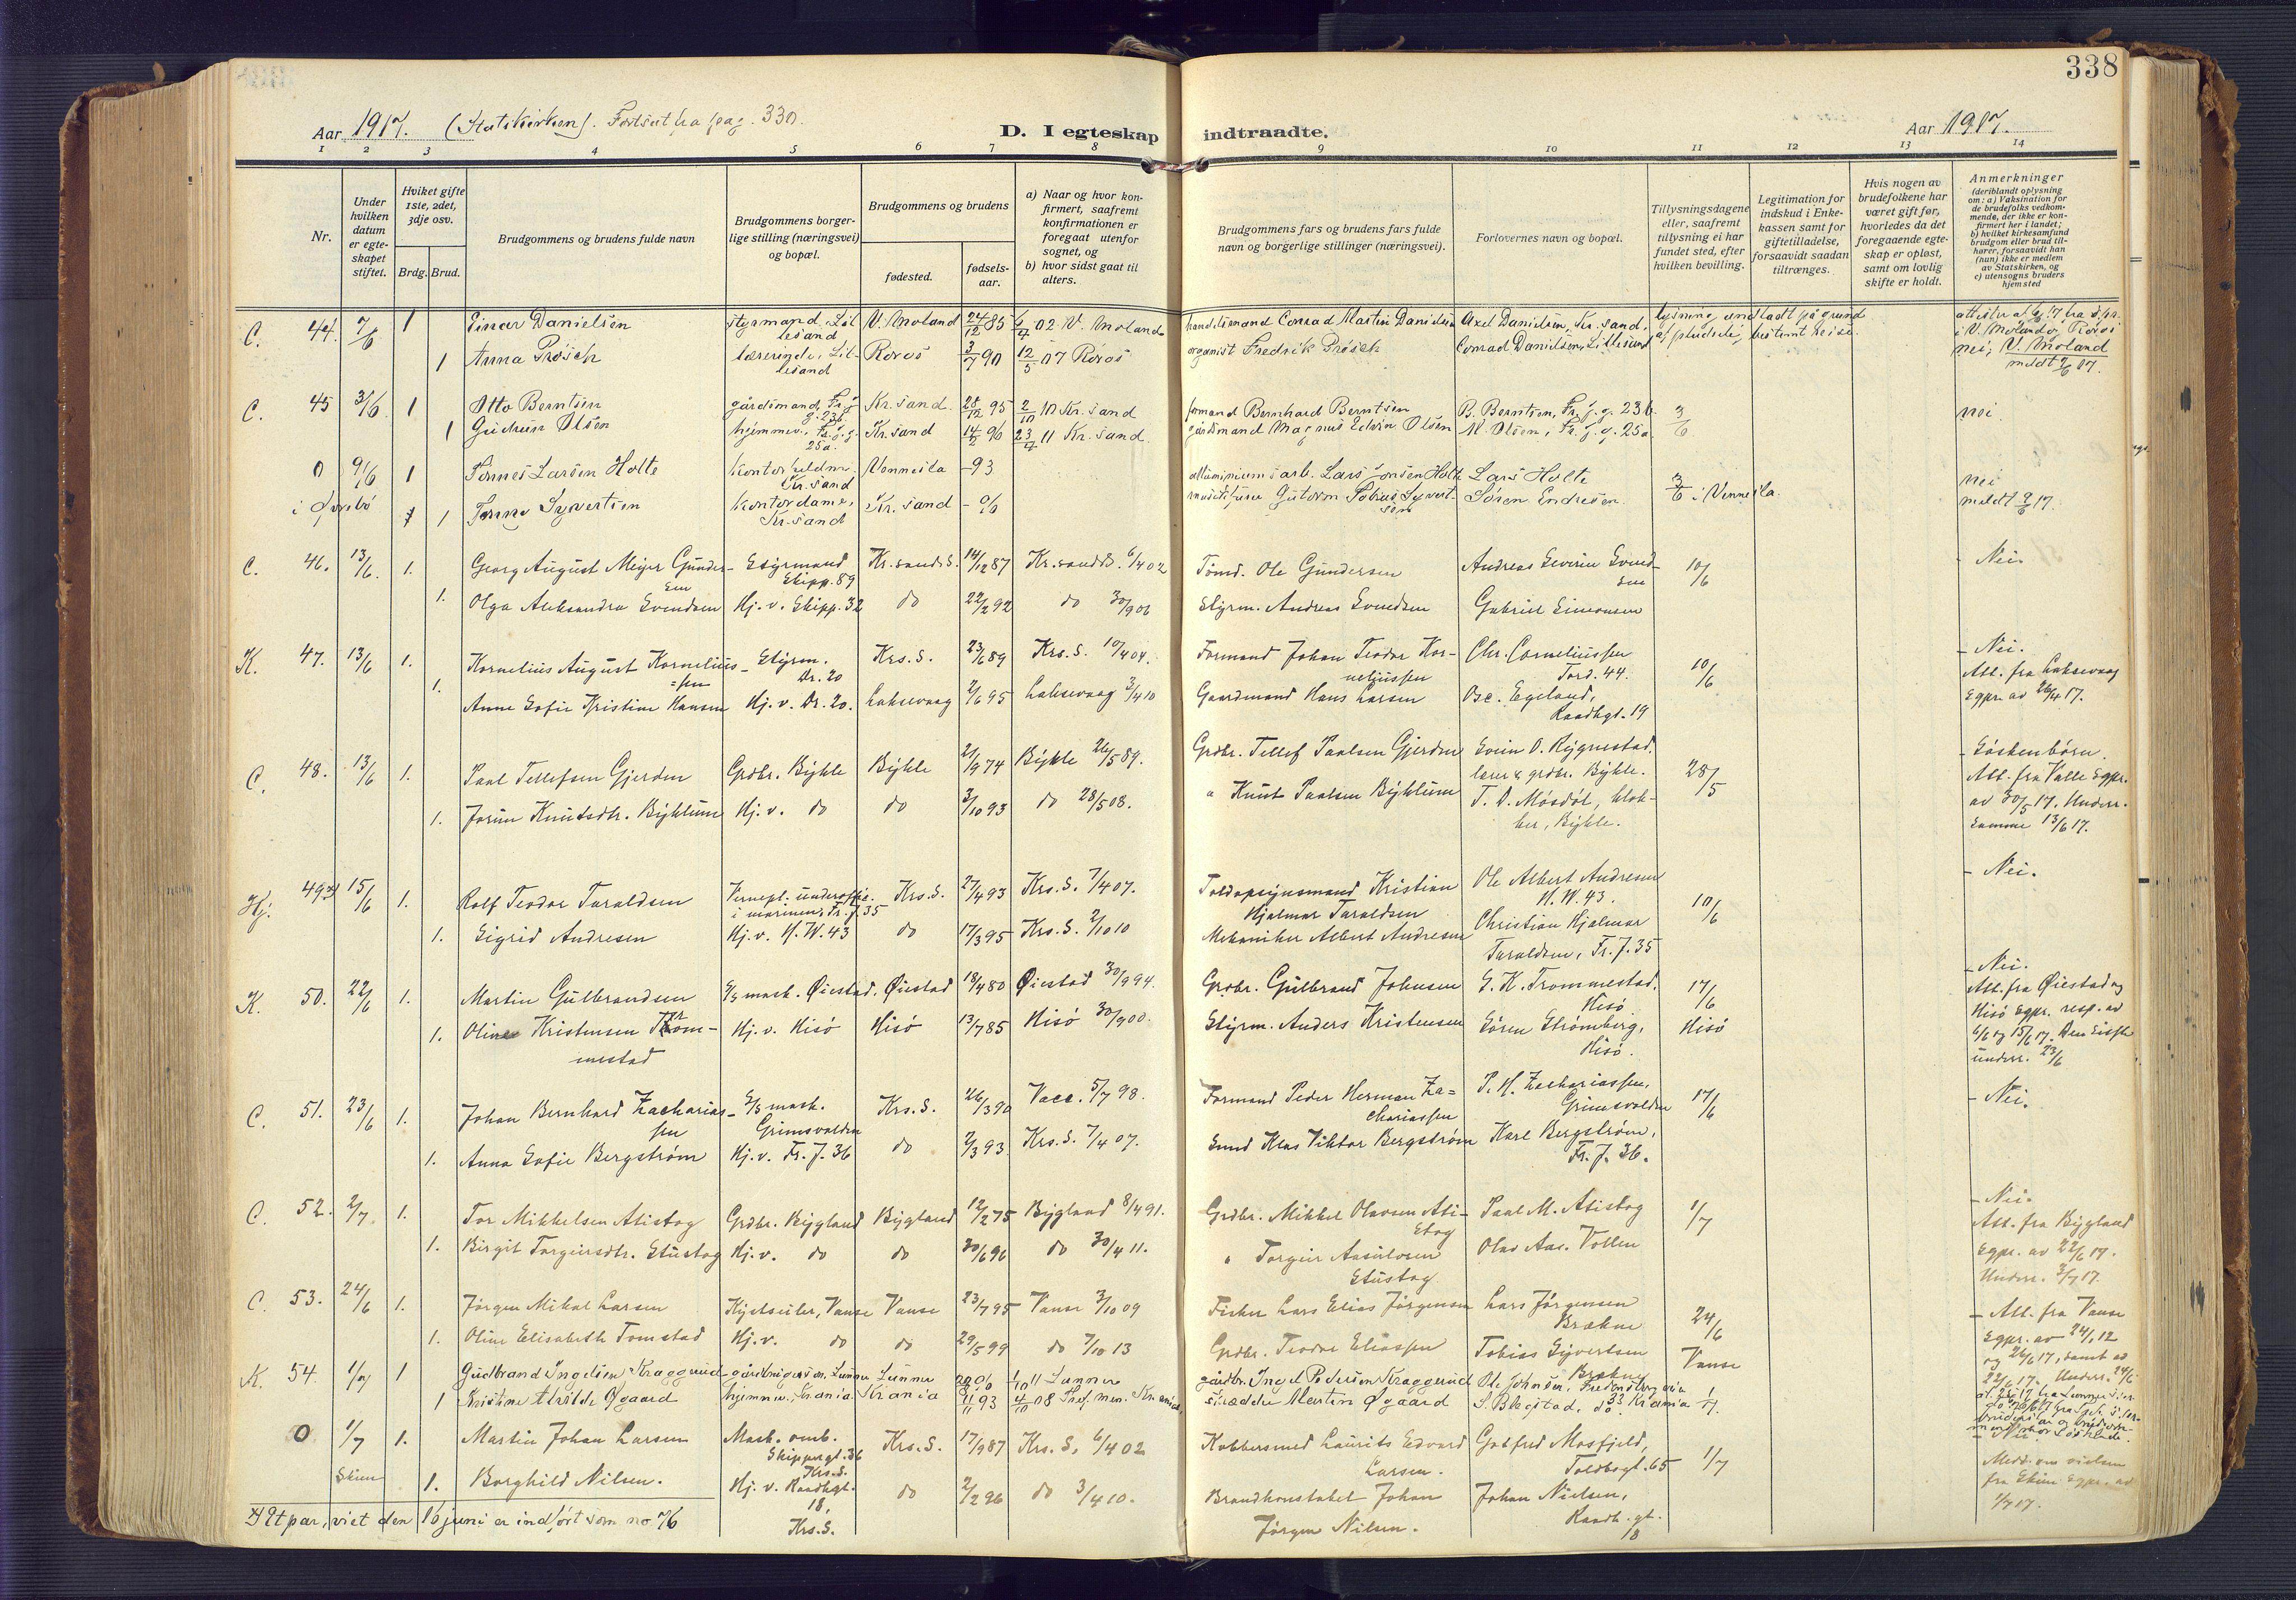 338
Aar 1917. (Statskirken). Fortsat fra pag. 330.
D. I egteskap indtraadte.
Aar 1917.
1 2 3 4 5 6 7 8 9 10 11 12 13 14
Nr.
Under hvilken datum er egteskapet stiftet.
Hviket gifte 1ste, 2det, 3dje osv.
Brdg. Brud.
Brudgommens og brudens fulde navn
Brudgommens borgerlige stilling (næringsvei) og bopæl.
Brudgommens og brudens
fødested.
fødselsaar.
a) Naar og hvor konfirmert, saafremt konfirmationen er foregaat utenfor sognet, og
b) hvor sidst gaat til alters.
Brudgommens fars og brudens fars fulde navn og borgerlige stillinger (næringsvei).
Forlovernes navn og bopæl.
Tillysningsdagene eller, saafremt tillysning ei har fundet sted, efter hvilken bevilling.
Legitimation for indskud i Enkekassen samt for giftetilladelse, forsaavidt saadan tiltrænges.
Hvis nogen av brudefolkene har været gift før, hvorledes da det foregaaende egteskap er opløst, samt om lovlig skifte er holdt.
Anmerkninger
(deriblandt oplysning om: a) Vaksination for de brudefolks vedkommende, der ikke er konfirmert her i landet; b) hvilket kirkesamfund brudgom eller brud tilhører, forsaavidt han (hun) ikke er medlem av Statskirken, og c) utensogns bruders hjemsted
C. 44 7/6 1 Einar Danielsen styrmand, Lillesand V. Moland 24/12 85 02 V. Moland Conrad Martin Danielsen Axel Danielsen, Kr.sand.
1 Anna Prøsch lærerinde, Lillesand Røros 3/7 90 12/5 07 Røros organist Fredrik Prøsch Conrad Danielsen, Lillesand
lysning undladt på grund af pludselig bestemt reise.
nei; V. Moland
meldt 7/6 17.
C. 45 3/6 1 Otto Berntsen gårdsmand, Fr. j. g. 23b Kr.sand. 28/12 95 2/10 10 Kr.sand formand Bernhard Berntsen B. Berntsen, Fr. j. g. 23b. 3/6 nei
1 Gudrun Olsen hjemmev., Fr. j. g. 25a. Kr.sand 14/5 96 23/4 11 Kr.sand. gårdsmand Magnus Edvin Olsen M. Olsen, Fr. j. g. 25a.
0 9/6 1 Tønnes Larsen Holte Kr.sand Vennesla - 93 Lars Holte 3/6 i Vennesla. nei
1 Syvertsen kontordame, Kr.sand Kr.sand - 96 Søren Endresen meldt 9/6 17.
C. 46. 13/6. 1. Georg August Meyer Gundersen Styrmand Skipp. 89 Kr.sand S. 14/12 87 Kr.sand S. 6/4 02 Tømd. Ole Gundersen Andreas Severin Svendsen 10/6 - Nei.
1. Olga Aleksandra Svendsen Hj. v. Skipp. 32 do 22/2 92 do 30/9 06 Styrm. Andreas Svendsen Gabriel Simonsen
K. 47. 13/6 1. Kornelius August Korneliussen Styrm. Dr. 20 Krs. S. 23/6 89 Krs. S. 10/4 04. Formand Johan Teodor Korneliussen Chr. Corneliussen Tord. 44. 10/6 - Nei.
1. Anne Sofie Kristine Hansen Hj. v. Dr. 20. Laksevaag 2/6 95 Laksevaag 3/4 10 Gaardmand Hans Larsen Osc. Egeland, Raadhgt. 19
Att. fra Laksevaag
Sgpr. av 26/4 17.
C. 48. 13/6 1. Paal Tellefsen Gjerden Grdbr. Bykle Bykle 21/9 74 Bykle 26/5 89. Grdbr. Tellef Paalsen Gjerden Svein O. Rygnestad. lærer & grdbr. Bykle. 28/5 - Søskenbørn.
1. Jorun Knutsdtr. Byklum Hj. v. do do 3/10 93 do 28/5 08. " Knut Paalsen Byklum T. D. Mosdøl, klokker, Bykle.
Att. fra Valle Sgpr.
av 30/5 17. Underr.
samme 13/6 17.
Hj. 49 x) 15/6 1. Rolf Teodor Taraldsen Vernepl. underoffic. i marinen, Fr. J. 35 Krs. S. 27/4 93 Krs. S. 7/4 07. Toldopsynsmand Kristian Hjalmar Taraldsen Ole Albert Andresen H. W. 43. 10/6 - Nei.
1. Sigrid Andresen Hj. v. H. W. 43 do 17/3 95 Krs. S. 2/10 10 Mekaniker Albert Andresen Christian Hjalmar Taraldsen, Fr. J. 35
K. 50. 22/6 1. Martin Gulbrandsen S/S mask. Øiestad. Øiestad 18/4 80 Øiestad 30/9 94. Grdbr. Gulbrand Johnsen G. K. Trommestad. Hisø 17/6 - Nei.
1. Oline Kristensen Trommestad Hj. v. Hisø Hisø 13/7 85 Hisø 30/9 00. Styrm. Anders Kristensen Søren Strømberg, Hisø. Hisø
Att. fra Øiestad og
Hisø Sgpr. resp. av
6/6 og 15/6 17. Den sidste
underr. 23/6
C. 51. 23/6 1. Johan Bernhard Zachariassen S/S mask. Grimsvolden Krs. S. 26/3 90 Vacc. 5/7 98. Formand Peder Herman Zachariassen P. H. Zachariassen, Grimsvolden 17/6 - Nei.
1. Anna Sofie Bergstrøm Hj. v. Fr. J. 36 do 2/3 93 Krs. S. 7/4 07. Smed Klas Viktor Bergstrøm Karl Bergstrøm, Fr. J. 36.
C. 52. 2/7 1. Tor Mikkelsen Atistog Grdbr. Bygland Bygland 12/2 75 Bygland 8/4 91. Grdbr. Mikkel Olavsen Atistog Paal M. Atistog 1/7 - Nei.
1. Birgit Torgeirsdtr. Stustog Hj. v. do do 30/6 96 do 30/4 11. " Torgeir Aasulvsen Stustog Olav Aas. Vollen
Att. fra Bygland
Sgpr. av 22/6 17.
Underr. 3/7 17.
C. 53. 24/6 1. Jørgen Mikal Larsen Kystseiler, Vanse Vanse 23/7 95 Vanse 3/10 09 Fisker Lars Elias Jørgensen Lars Jørgensen Brækne 24/6 - Att. fra Vanse
1. Oline Elisabeth Tomstad Hj. v. do do 29/5 99 do 7/10 13 Grdbr. Teodor Eliassen Tobias Syvertsen Brækne Vanse
Sgpr. av 24/1 12
og 26/6 17, samt av
22/6 17. Underr. 24/6
K. 54. 1/7 1 Gudbrand Ingelsen Kraggerud Lunner Lunner 96 11 Lunner gårdbr. Ingel Pedersen Kraggerud
1 Kristine Øgaard hjemmev. Krania Krania 8/11 93 4/10 08 skrædder Martin Øgaard Krania 1/7.
0 1/7 1. Martin Johan Larsen Mask. omb. Skippergt. 36 Krs. S. Krs. S. 17/9 87 Krs. S. 6/4 02 Kobbersmed Laurits Edvard Larsen. Gotfred Mosfjeld, Toldbogt. 65 1/7 - Nei.
Skien 1. Borghild Nilsen. Hj. v. Raadhgt. 18, Krs. S. do 2/2 96 do 3/4 10. Brandkonstabel Johan Jørgen Nilsen. Johan Nielsen, Raadh. gt. 18
Medd. om vielsen
fra Skien Sgpr. av
1/7 17.
x) Et par, viet den 16 juni er indført som no 76